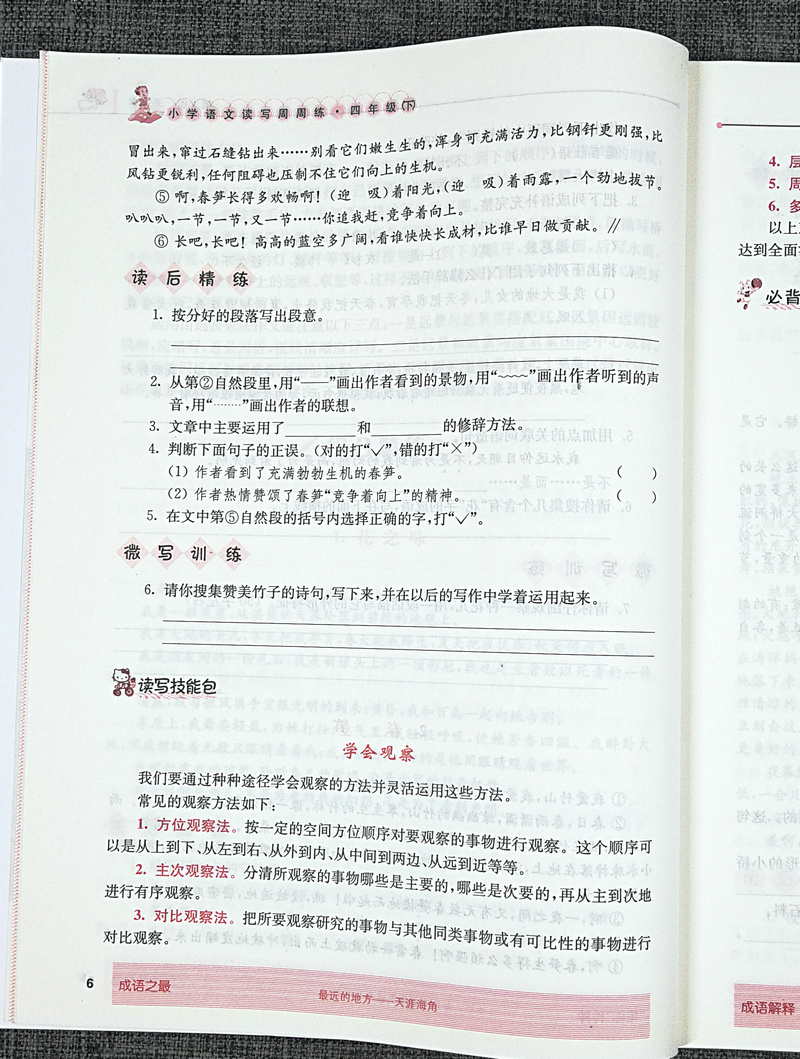 小学语文读写周周练·四年级(下)
冒出来,窜过石缝钻出来……别看它们嫩生生的,浑身可充满活力,比钢针更刚强,比
风钻更锐利,任何阻碍也压制不住它们向上的生机。
⑤ 啊,春笋长得多欢畅啊!(迎 吸)着阳光,(迎 吸)着雨露,一个劲地拔节。
叭叭叭,一节,一节,又一节……你追我赶,竞争着向上。
⑥ 长吧,长吧!高高的蓝空多广阔,看谁快快长成材,比谁早日做贡献。∥
读后精练
1. 按分好的段落写出段意。
2. 从第②自然段里,用“——”画出作者看到的景物,用“﹏﹏”画出作者听到的声
音,用“………”画出作者的联想。
3. 文章中主要运用了________和________的修辞方法。
4. 判断下面句子的正误。(对的打“√”,错的打“×”)
(1) 作者看到了充满勃勃生机的春笋。 ( )
(2) 作者热情赞颂了春笋“竞争着向上”的精神。 ( )
5. 在文中第⑤自然段的括号内选择正确的字,打“√”。
微写训练
6. 请你搜集赞美竹子的诗句,写下来,并在以后的写作中学着运用起来。
读写技能包
学会观察
我们要通过种种途径学会观察的方法并灵活运用这些方法。
常见的观察方法如下:
1. 方位观察法。按一定的空间方位顺序对要观察的事物进行观察。这个顺序可
以是从上到下、从左到右、从外到内、从中间到两边、从远到近等等。
2. 主次观察法。分清所观察的事物哪些是主要的,哪些是次要的,再从主到次地
进行有序观察。
3. 对比观察法。把所要观察研究的事物与其他同类事物或有可比性的事物进行
对比观察。
6
成语之最
最远的地方——天涯海角
4. 层
5. 周
6. 多
以上
达到全面
必背
成语解释